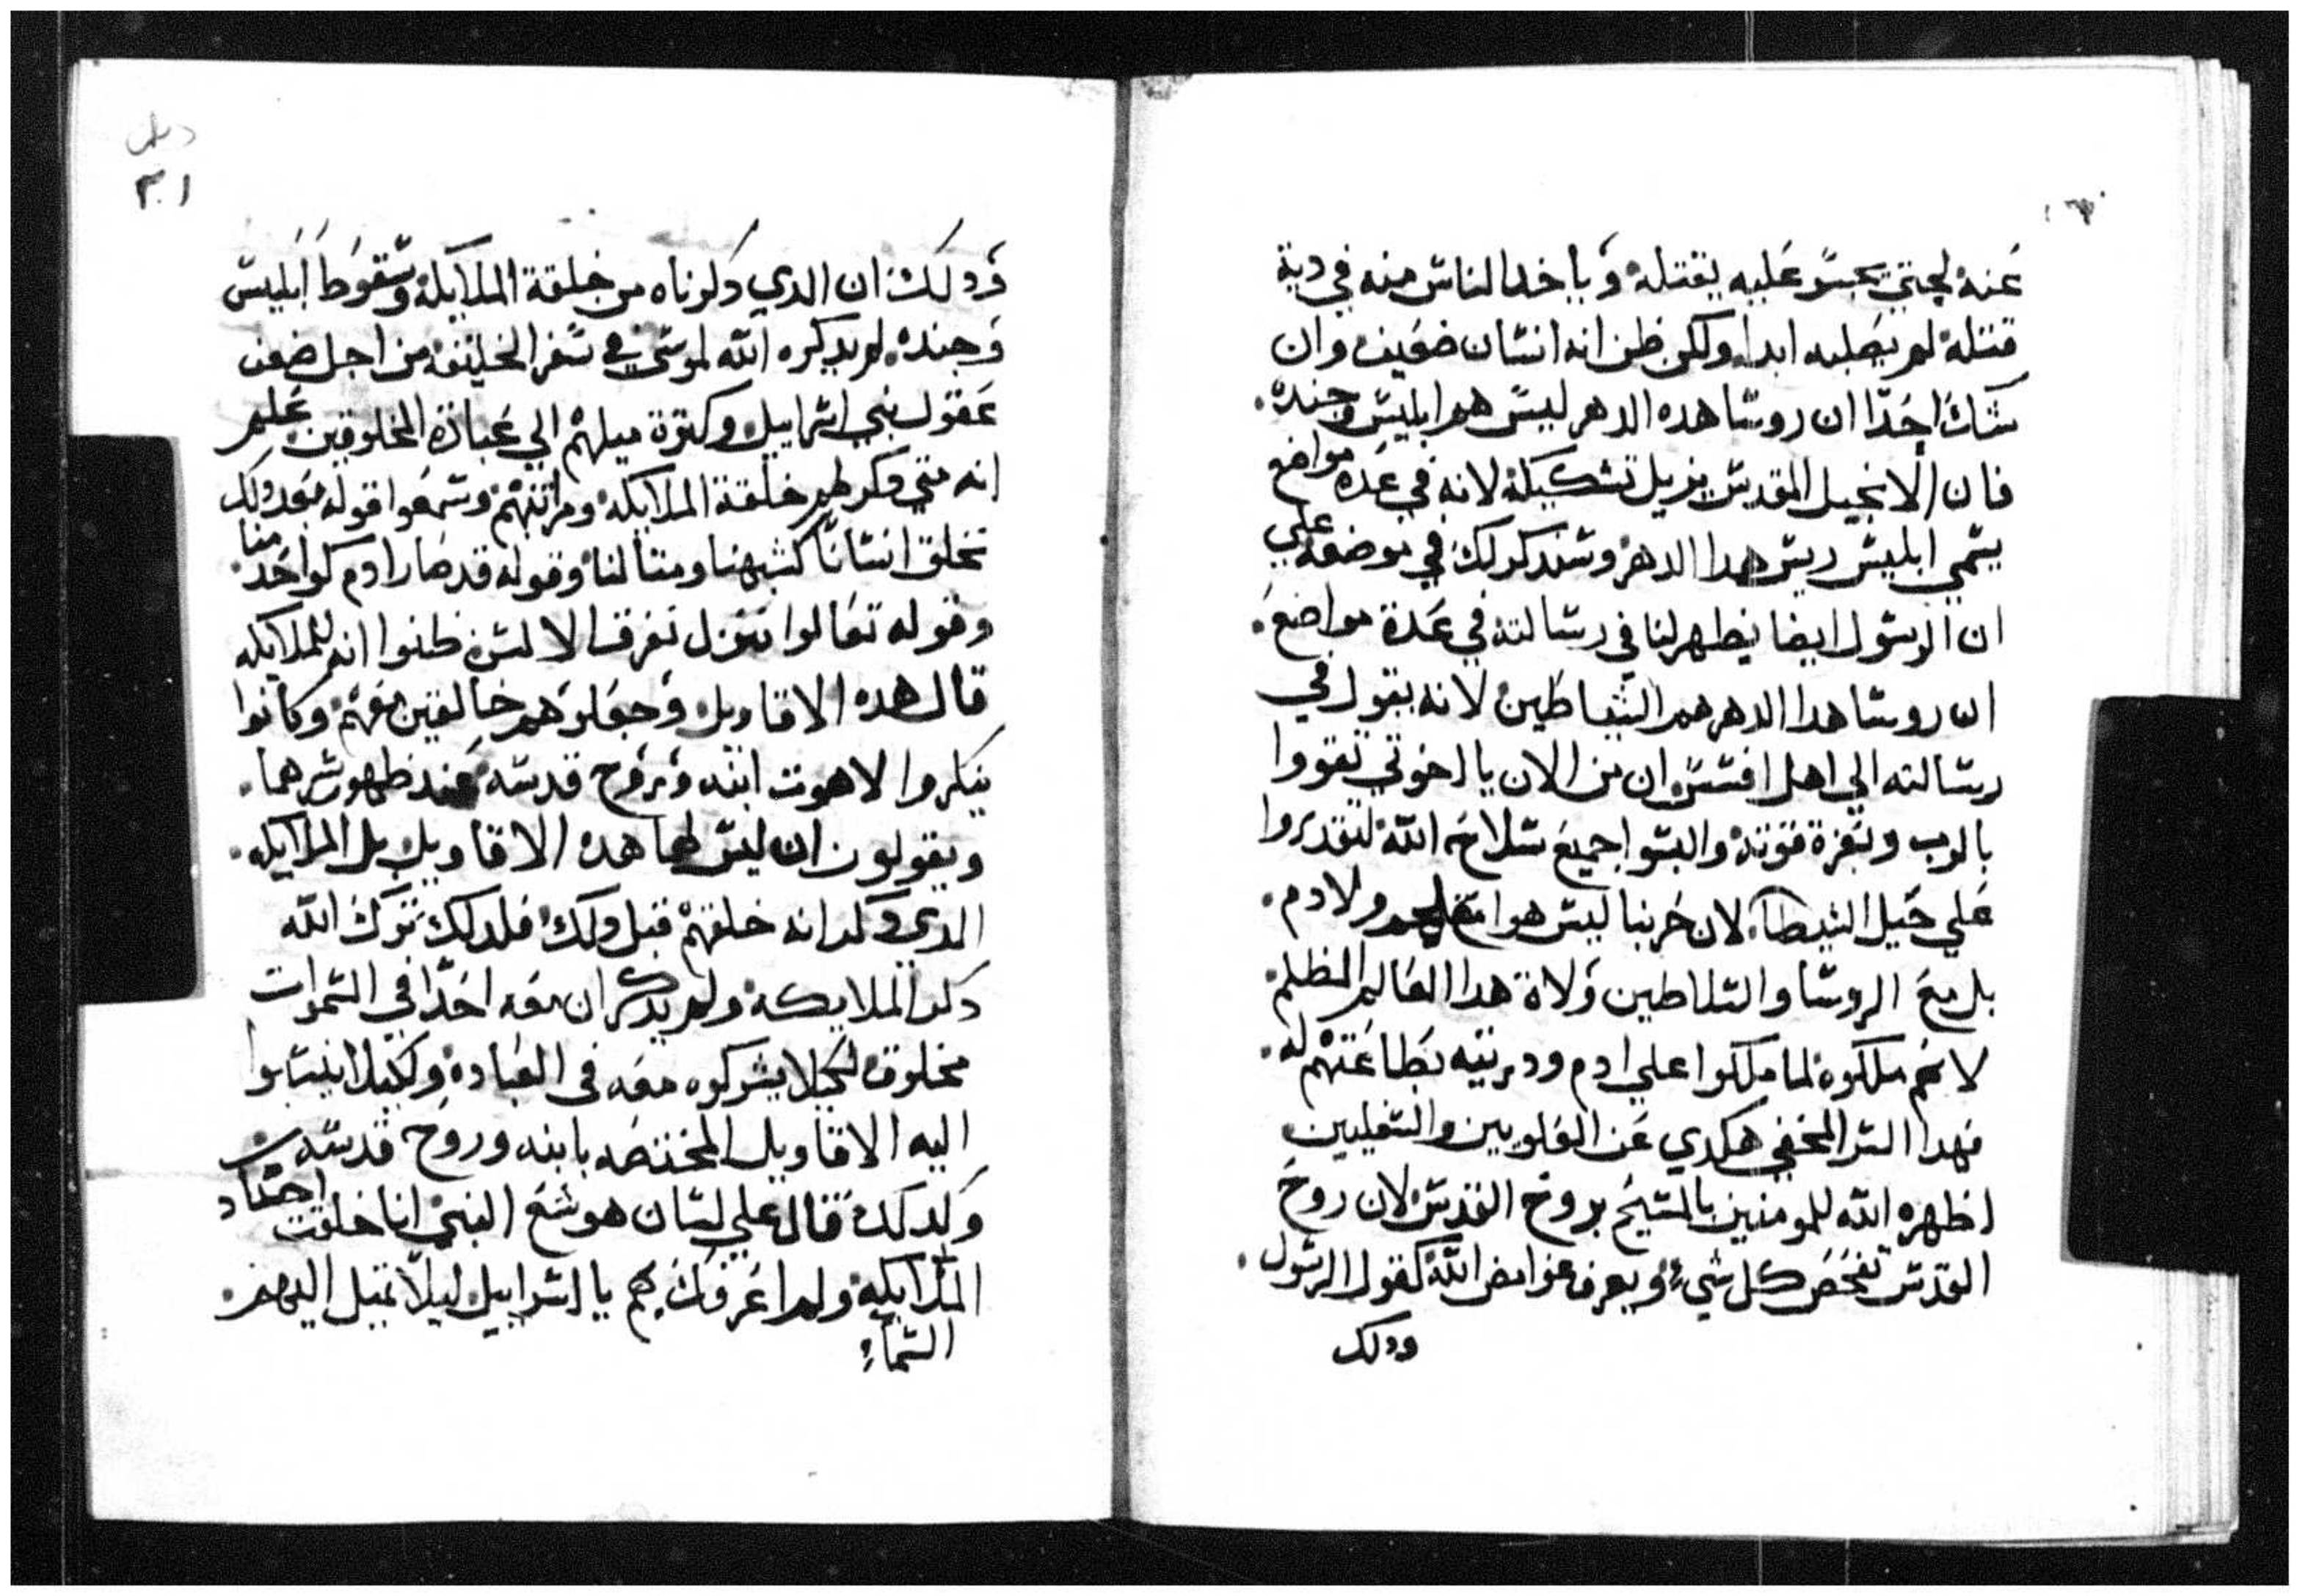 عنه لحتي يجسر عليه يقتله وياخد الناس منه في دية
قتله لم يصلبه ابدا. ولكن ظن انه انسان ضعيف وان
شكك احدا ان روسا هده الدهر ليس هم ابليس وجنده.
فان الانجيل المقدس يزيل تشكيكه لانه في عدة مواضع
يسمي ابليس ريس هدا الدهر وسندكر لك في موضعه علي
ان الرسول ايضا يظهر لنا في رسالته في عدة مواضع.
ان روسا هدا الدهر هم الشياطين لانه يقول في
رسالته الي اهل افسس ان من الان يا اخوتي تقووا
بالرب وبعزة قوته والبسوا جميع سلاح الله لتقدروا
علي حيل الشيطان لان حربنا ليس هو مع لحم ولا دم.
بل مع الروسا والسلاطين ولاة هدا العالم المظلم.
لانهم ملكوه لما ملكوا علي ادم ودريته بطاعتهم له.
فهدا السر المخفي هكدي عن العلويين والسفليين
اظهره الله للمومنين بالمسيح بروح القدس لان روح
القدس تفحص كل شيء ويعرف غوامض الله كقول الرسول.
ودلك
٣١
ودلك ان الدي دكرناه من خلقة الملايكة وسقوط ابليس
وجنده. لم يدكره الله لموسي في سفر الخليقة من اجل ضعف
عقول بني اسراييل وكترة ميلهم الي عبادة المخلوقين علم
انه متي دكر لهم خلقة الملايكة ومراتبهم وسمعوا قوله بعد دلك
نخلق انسانا كشبهنا ومتالنا وقوله قد صار ادم كواحد منا.
وقوله تعالوا ننزل نفرق الالسن ظنوا انه للملايكه
قال هده الاقاويل وجعلوهم خالقين معهم وكانوا
ينكروا لاهوت ابنه وروح قدسه عند ظهور سرهما.
ويقولون ان ليس لهما هده الاقاويل بل الملايكه.
الدي دكر انه خلقهم قبل دلك فلدلك ترك الله
دكر الملايكة ولم يدكر ان معه احدا في السموات
مخلوق لكيلا يشركوه معه في العبادة ولكيلا ينسبوا
اليه الاقاويل المختصه بابنه وروح قدسه
ولدلك قال علي لسان هوشع النبي انا خلقت اجناد
الملايكة ولم اعرفك بهم يا اسراييل ليلا تميل اليهم.
السماء